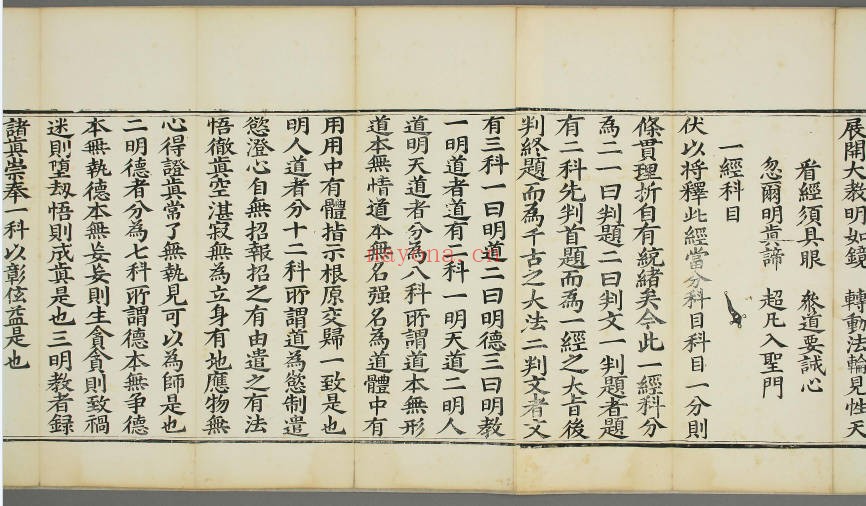 展開大教明如鏡　轉動法輪見性天
看經須具眼　參道要誠心
忽爾明眞諦　超凡入聖門
一經科目
伏以将釋此經當分科目科目一分則
條貫理折自有統緒矣今此一經科分
為二一曰判題二曰判文一判題者題
有二科先判首題而為一經之大旨後
判終題而為千古之大法二判文者文
有三科一曰明道二曰明德三曰明教
一明道者道有二科一明天道二明人
道明天道者分為八科所謂道本無形
道本無情道本無名强名為道體中有
用用中有體指示根原交歸一致是也
明人道者分十二科所謂道為慾制遣
慾澄心自無招報招之有由遣之有法
悟徹眞空湛寂無為立身有地應物無
心得證眞常了無執見可以為師是也
二明德者分為七科所謂德本無争德
本無執德本無妄妄則生貪貪則致禍
迷則墮劫悟則成眞是也三明教者録
諸眞崇奉一科以彰弦益是也
nayona.cn